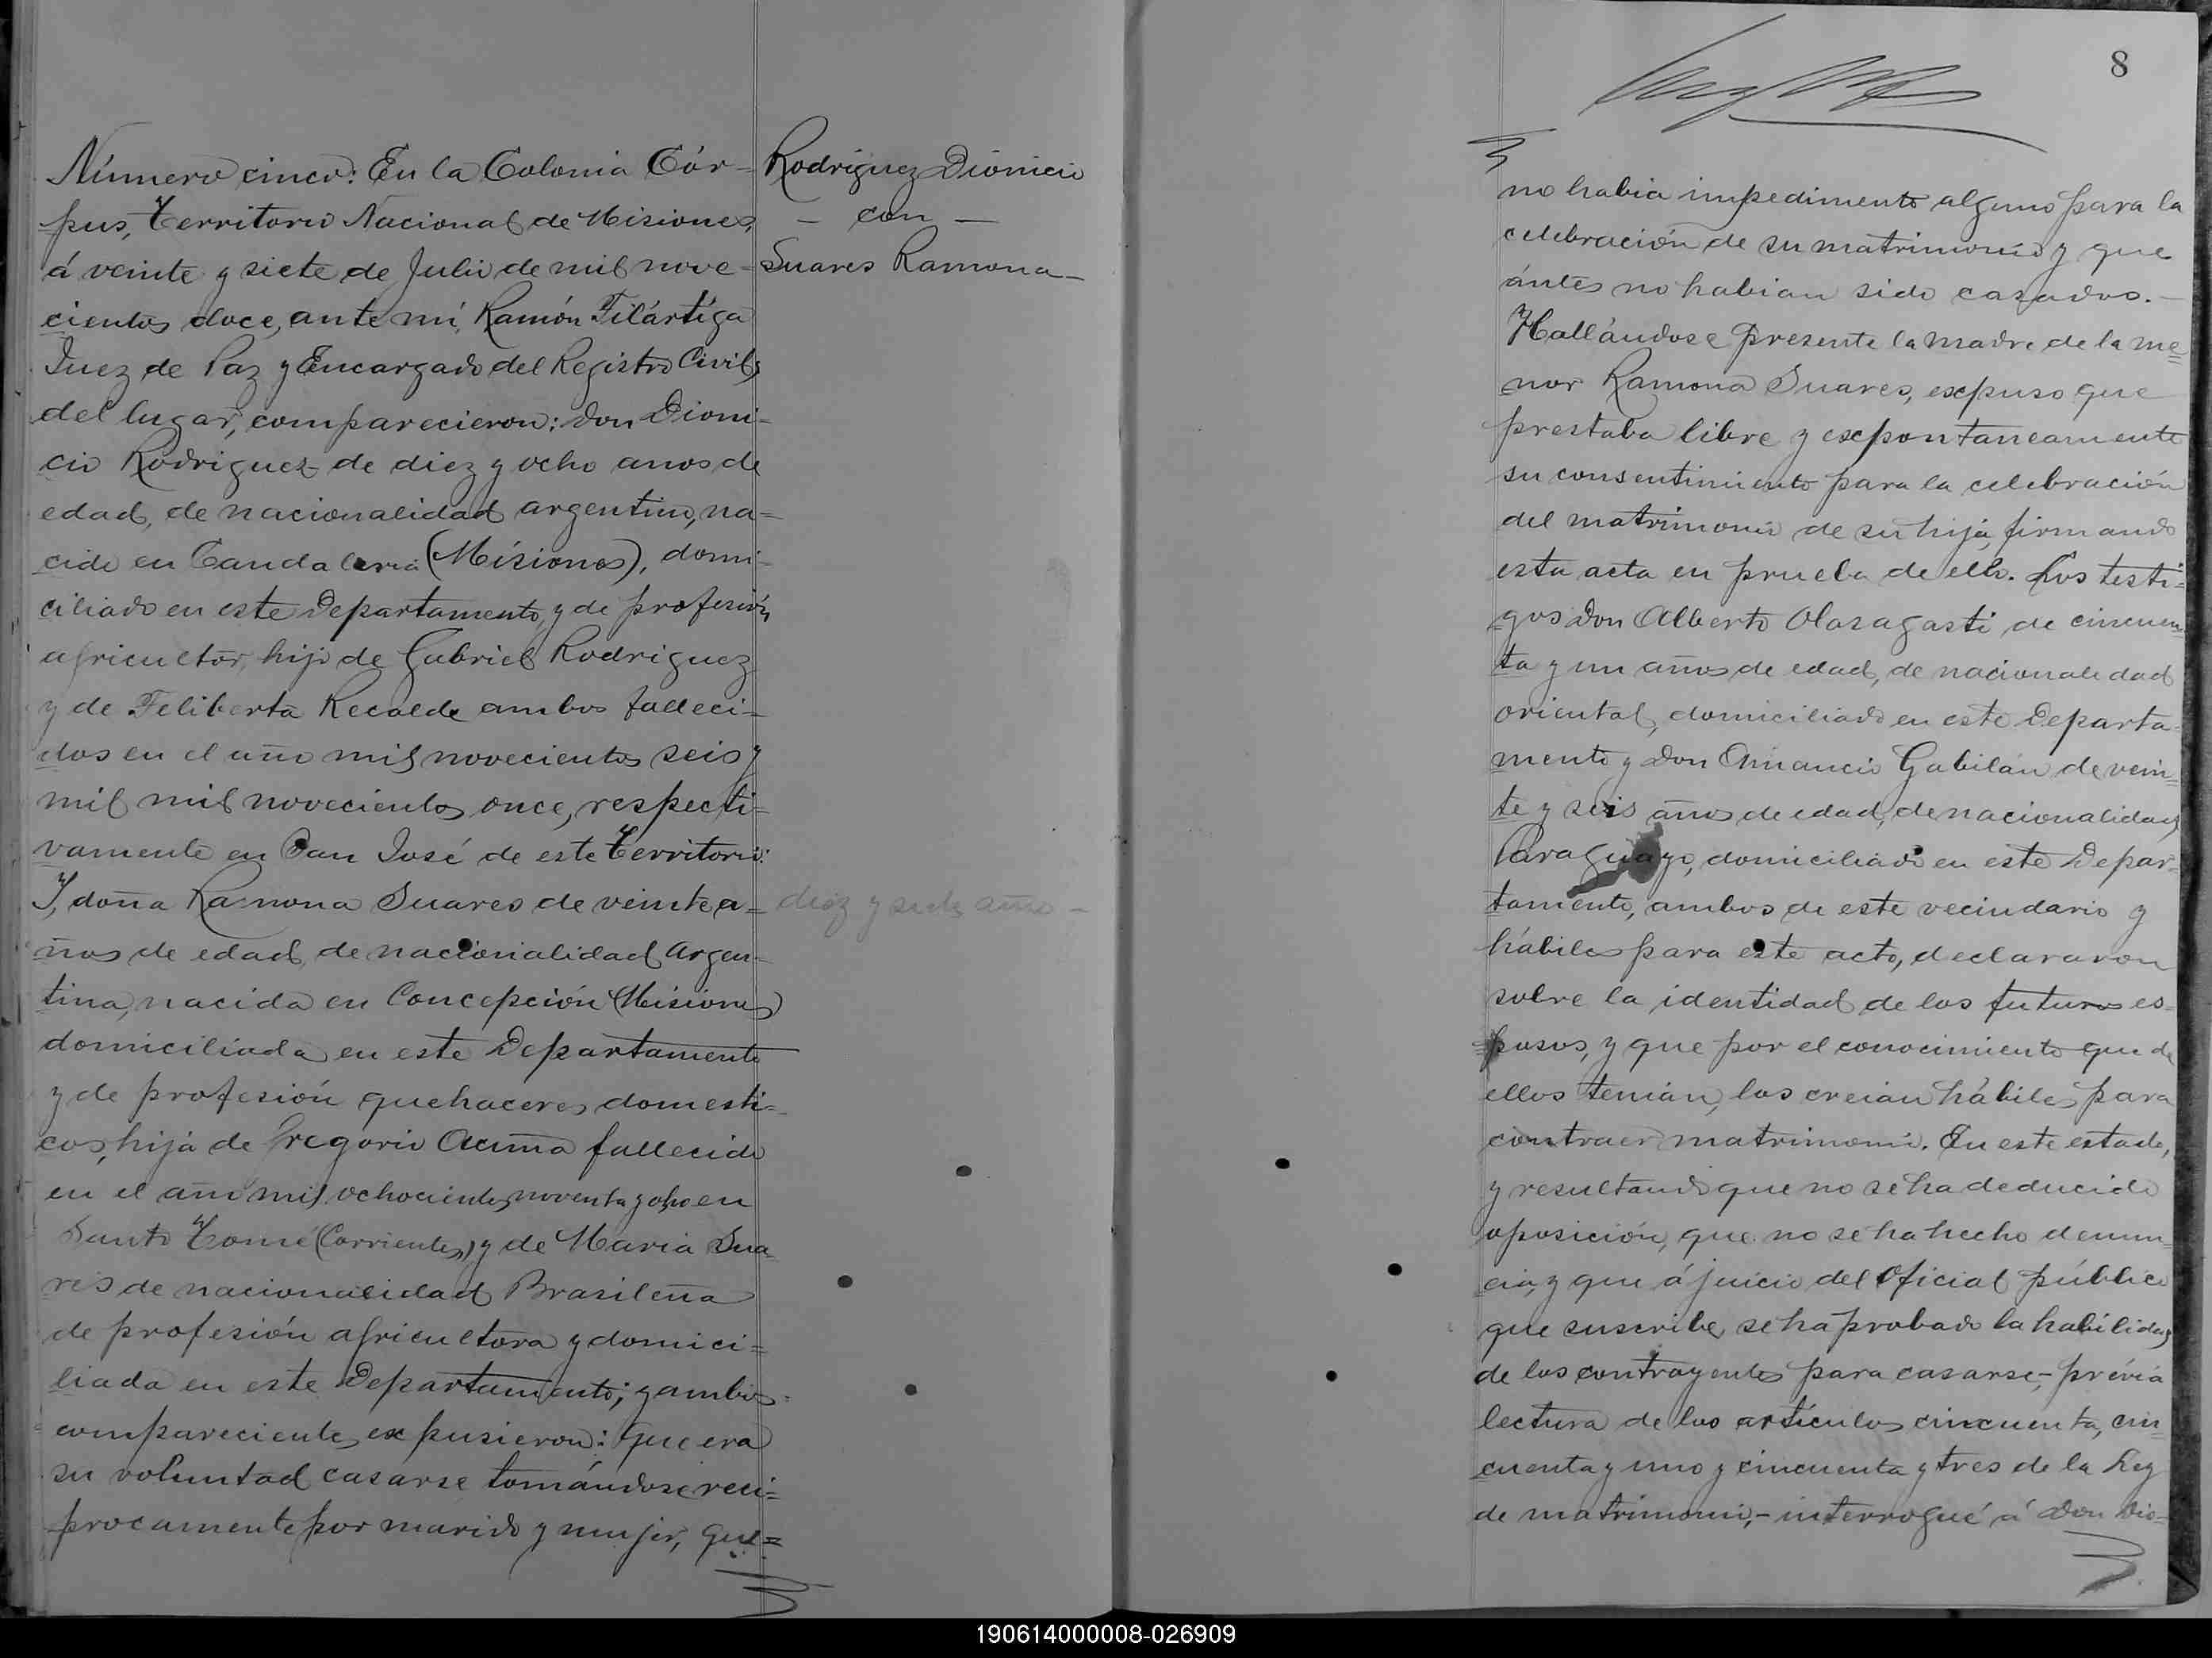 Número cinco: En la Colonia Cór-
pus, Territorio Nacional de Misiones,
á veinte y siete de Julio de mil nove-
cientos doce, ante mí, Ramón Filártiga
Juez de Paz y Encargado del Registro Civil,
del lugar, comparecieron: Don Dioni-
cio Rodriguez de diez y ocho anos de
edad, de nacionalidad argentino, na=
cido en Candalaria (Misiones), domi-
ciliado en este Departamento, y de profesión
agricultor, hijo de Gabriel Rodriguez
y de Feliberta Recalde ambos falleci-
dos en el año mil novecientos seis y
mil mil novecientos once, respecti=
vamente en San José de este Territorio:
Y, doña Ramona Suares de veinte a=
ños de edad, de nacionalidad Argen-
tina, nacida en Concepción (Misiones)
domiciliada en este Departamento
y de profesión quehaceres domesti=
cos, hija de Gregorio Acuña fallecido
en el año mil ochocientos noventa y ocho en
Santo Tomé (Corrientes) y de Maria Sua-
res de nacionalidad Brasileña
de profesión agricultora y domici=
liada en este Departamento; y ambos
comparecientes expusieron: Que era
su voluntad casarse tomándose reci=
procamente por marido y mujer, que=
Rodriguez Dionicio
- con -
Suares Ramona-
diez y siete años -
8
no habia impedimento alguno para la
celebración de su matrimonio y que
ántes no habian sido casados.-
Hallándose presente la madre de la me=
nor Ramona Suares, expuso que
prestaba libre y expontaneamente
su consentimiento para la celebración
del matrimonio de su hija, firmando
esta acta en prueba de ello. Los testi=
gos Don Alberto Olazagasti de cincuen=
ta y un años de edad, de nacionalidad
oriental, domiciliado en este Departa-
mento y Don Amancio Gabilán de vein=
te y seis años de edad, de nacionalidad
Paraguayo, domiciliado en este Depar=
tamento, ambos de este vecindario y
hábiles para este acto, declararon
sobre la identidad de los futuros es-
posos, y que por el conocimiento que de
ellos tenian, los creian hábiles para
contraer matrimonio. En este estado,
y resultando que no se ha deducido
oposición, que no se ha hecho denun=
cia, y que á juicio del Oficial público
que suscribe, se ha probado la habilidad
de los contrayentes para casarse,- prévia
lectura de los artículos cincuenta, cin
cuenta y uno y cincuenta y tres de la Ley
de matrimonio,- interrogué á Don Dio=
190614000008-026909